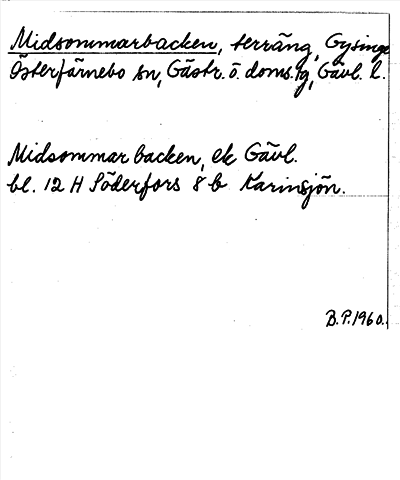 Midsommarbacken, terräng, Gysinge
Österfärnebo sn, Gästr. ö. doms.tg, Gävl. l.
Midsommarbacken, ek Gävl.
bl. 12 H Söderfors 8 b Karinsjön.
B.P. 1960.